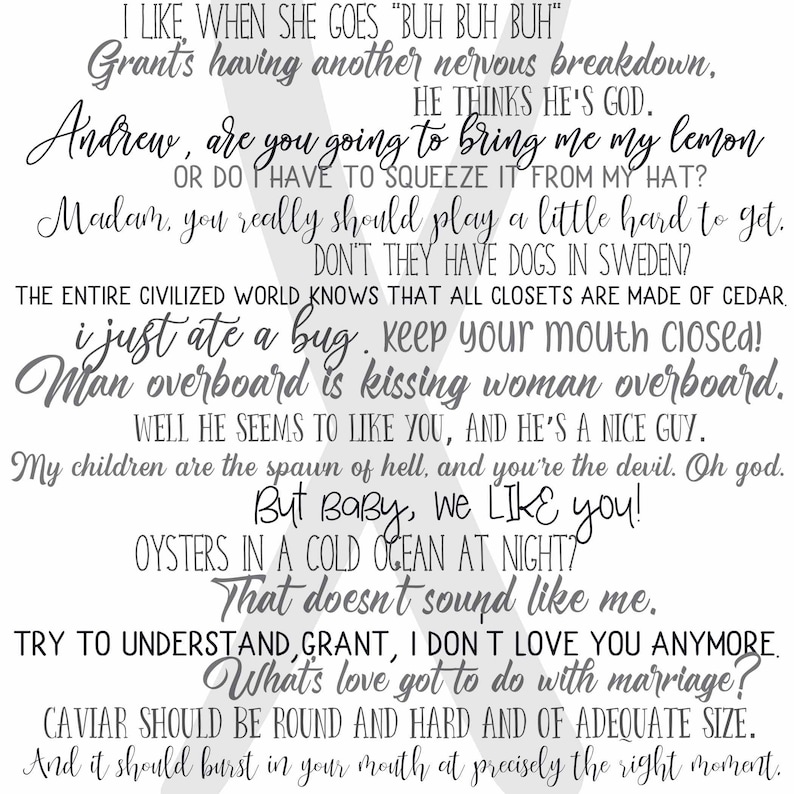 I LIKE WHEN SHE GOES "BUH BUH BUH"
Grant's having another nervous breakdown.
HE THINKS HE'S GOD.
Andrew, are you going to bring me my lemon
OR DO I HAVE TO SQUEEZE IT FROM MY HAT?
Madam, you really should play a little hard to get.
DON'T THEY HAVE DOGS IN SWEDEN?
THE ENTIRE CIVILIZED WORLD KNOWS THAT ALL CLOSETS ARE MADE OF CEDAR.
i just ate a bug. Keep your mouth closed!
Man overboard is kissing woman overboard.
WELL HE SEEMS TO LIKE YOU, AND HE'S A NICE GUY.
My children are the spawn of hell, and you're the devil. Oh god.
But Baby, we LIKE you!
OYSTERS IN A COLD OCEAN AT NIGHT?
That doesn't sound like me.
TRY TO UNDERSTAND,GRANT, I DON'T LOVE YOU ANYMORE.
What's love got to do with marriage?
CAVIAR SHOULD BE ROUND AND HARD AND OF ADEQUATE SIZE.
And it should burst in your mouth at precisely the right moment.